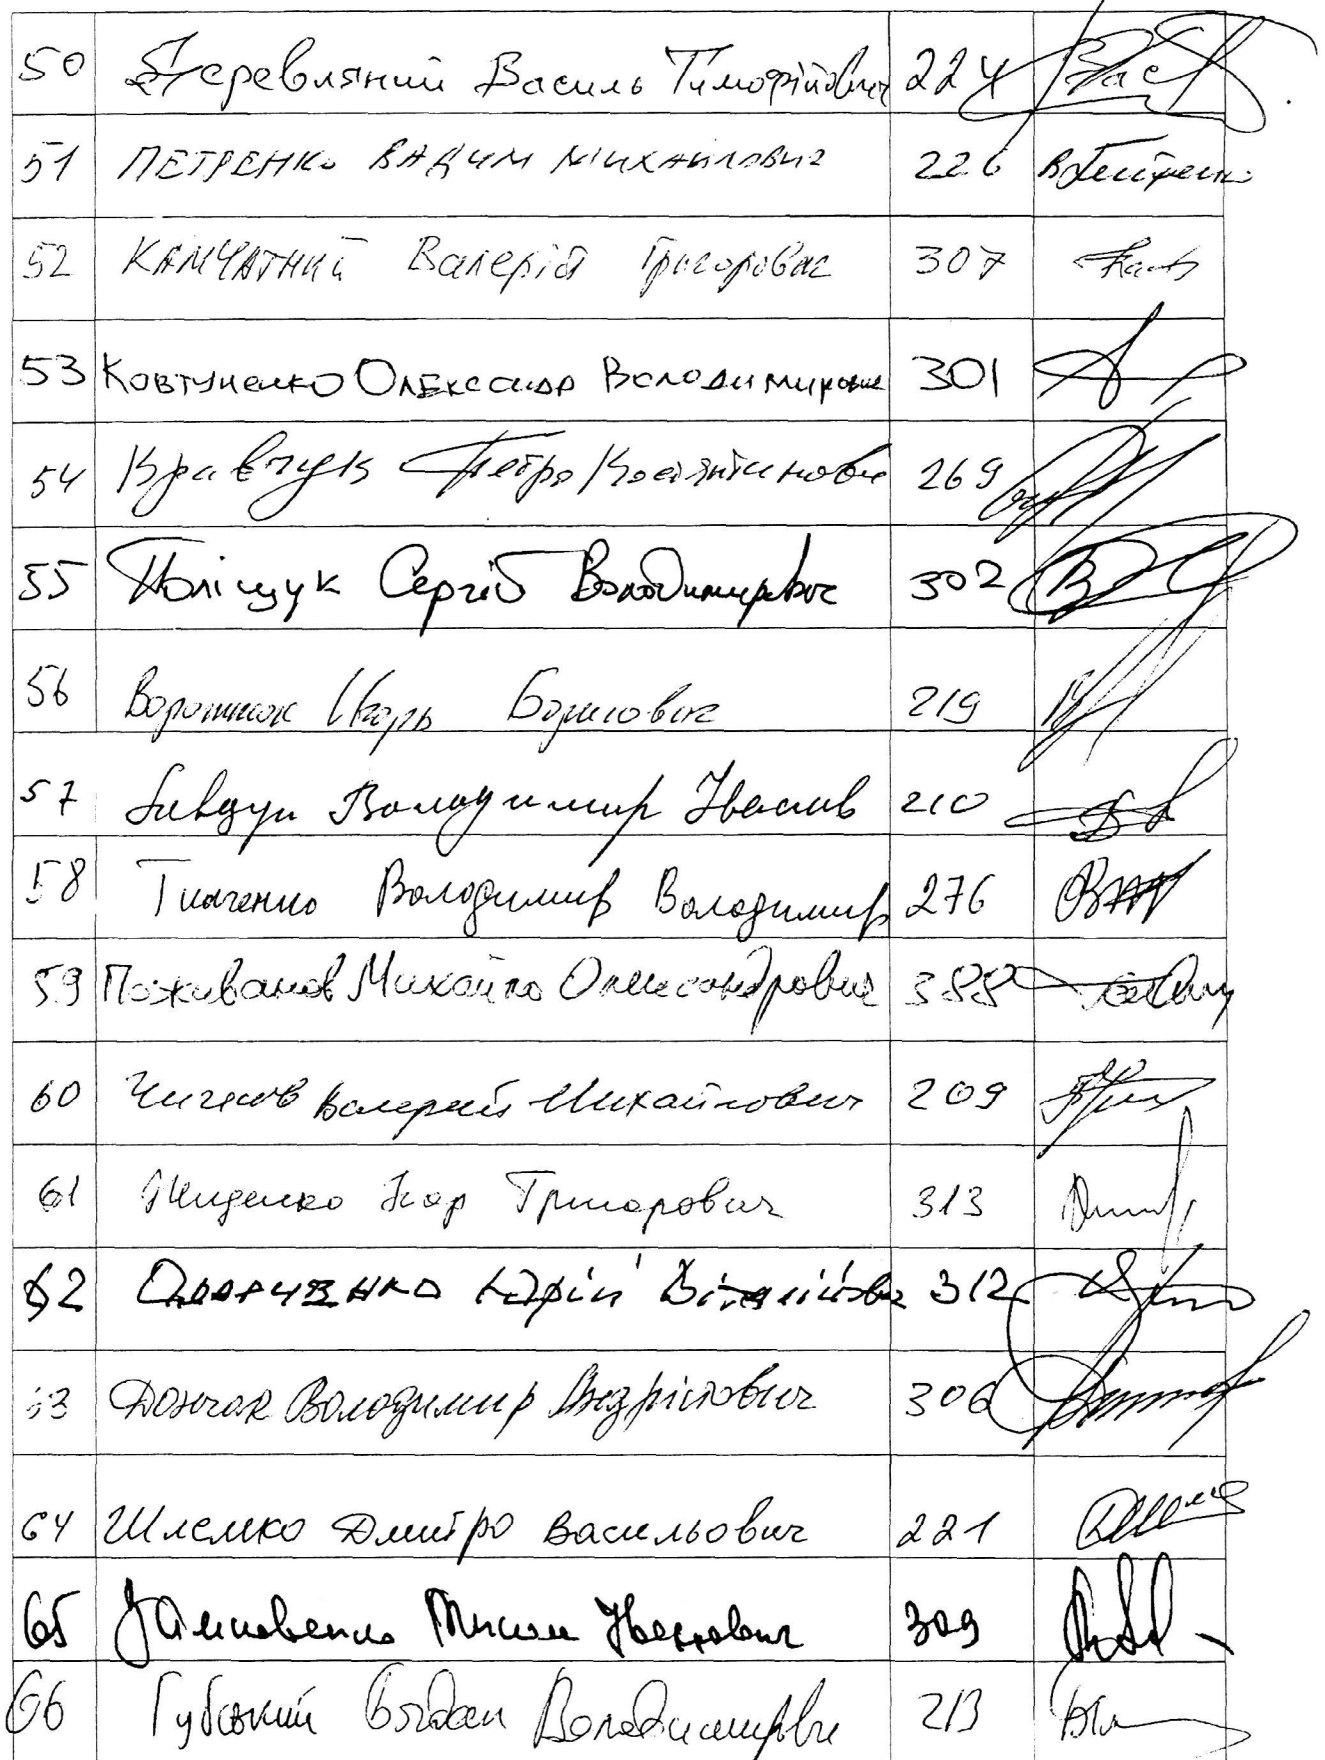 50 Деревляний Василь Тимофійович 224
51 ПЕТРЕНКО ВАДИМ МИХАЙЛОВИЧ 226
52 КАМЧАТНИЙ Валерій Григорович 307
53 Ковтуненко Олександр Володимирович 301
54 Кравчук Петро Костянтинович 269
55 Поліщук Сергій Володимирович 302
56 Воротнюк Игорь Борисович 219
57 Володимир Іванов 210
58 Ткаченко Володимир Володимир 276
59 Поживанов Михайло Олександрович 388
60 Валерий Михайлович 209
61 Игор Григорович 313
62 Юрій Віталійович 312
63 Дончак Володимир Андрійович 306
64 Шлемко Дмитро Васильович 221
65 309
66 Губський Богдан Володимирович 213